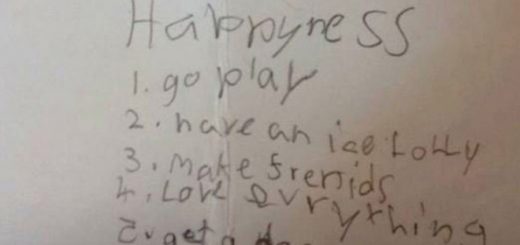 Happyness
1. go play
2. have an ice Lolly
3. Make frenids
4. Love evrything
get a